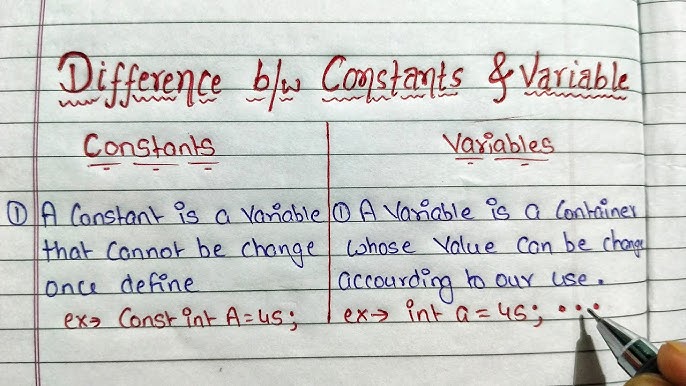 Difference b/w Constants & Variable
Constants
① A Constant is a variable
that cannot be change
once define
ex→ Const int A=45;
Variables
① A Variable is a Container
whose value can be change
accourding to our use.
ex→ int a=45; ...